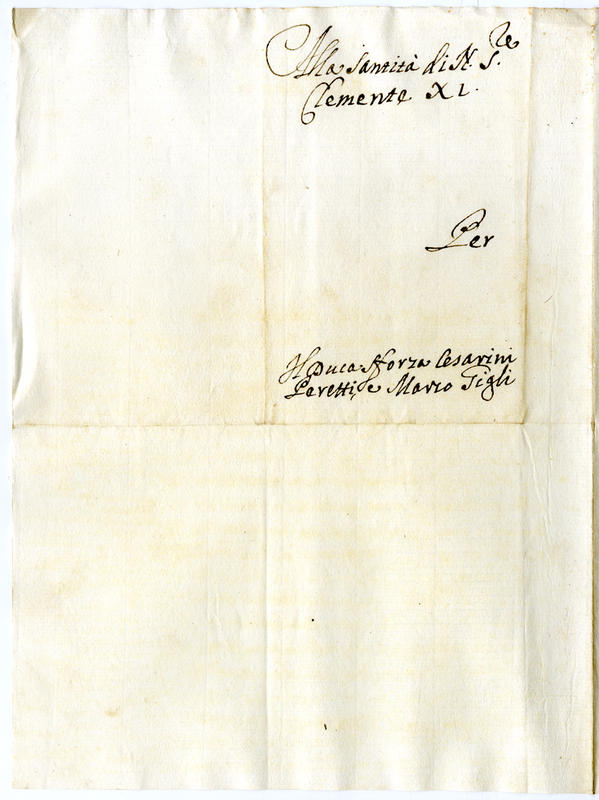 Alla Santità di N. S.re
Clemente XI.
Per
Il Duca Sforza Cesarini
Peretti, e Marco Gigli